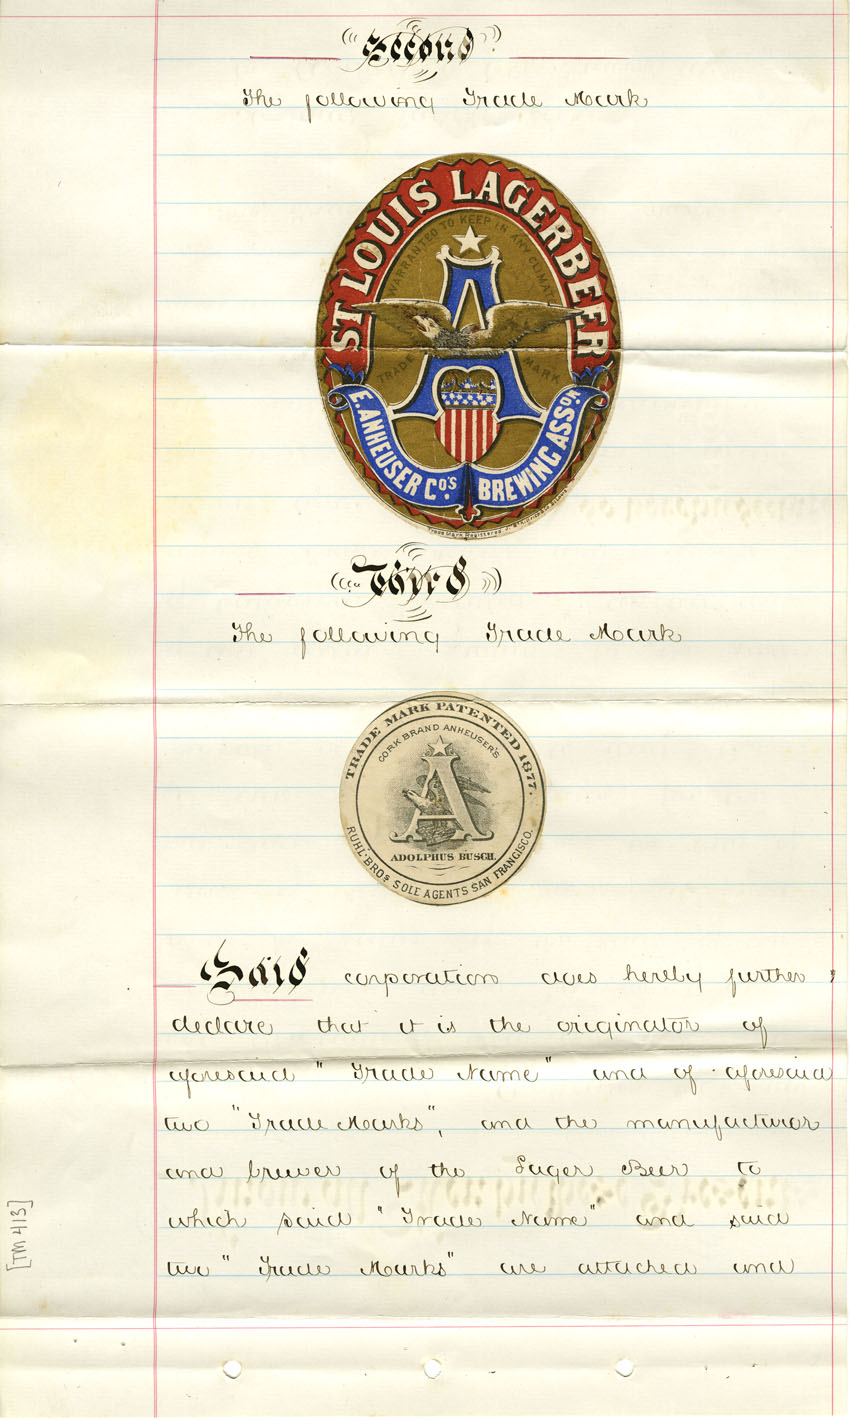 Second
The following Trade Mark
ST LOUIS LAGERBEER
WARRANTED TO KEEP IN ANY CLIMATE
A
TRADE MARK
E. ANHEUSER CO'S. BREWING ASSON
Trade Mark Registered
Third
The following Trade Mark
TRADE MARK PATENTED 1877.
CORK BRAND ANHEUSER'S
A
ADOLPHUS BUSCH.
RUHL BROS SOLE AGENTS SAN FRANCISCO.
Said corporation does hereby further
declare that it is the originator of
aforesaid "Trade Name" and of aforesaid
two "Trade Marks", and the manufacturer
and brewer of the Lager Beer to
which said "Trade Name" and said
two "Trade Marks" are attached and
[TM 413]